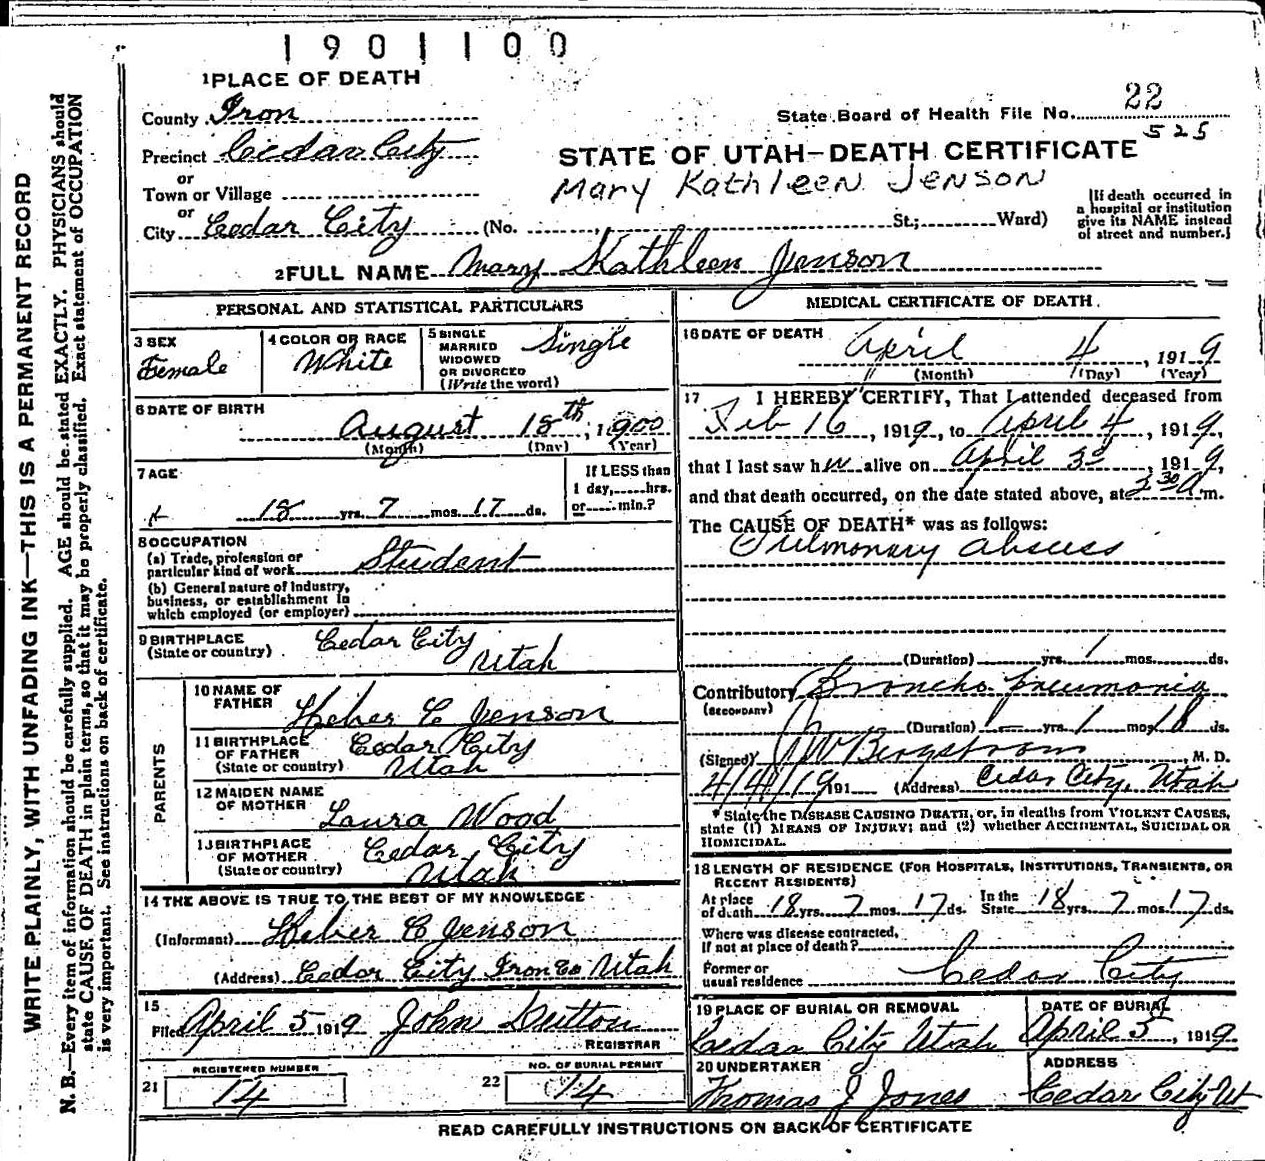 1901100
1 PLACE OF DEATH
County Iron
State Board of Health File No. 22
525
Precinct Cedar City
STATE OF UTAH—DEATH CERTIFICATE
or
Town or Village
Mary Kathleen Jenson
or
City Cedar City (No. St.; Ward)
[If death occurred in
a hospital or institution
give its NAME instead
of street and number.]
2 FULL NAME Mary Kathleen Jenson
PERSONAL AND STATISTICAL PARTICULARS
3 SEX
Female
4 COLOR OR RACE
White
5 SINGLE
MARRIED
WIDOWED
OR DIVORCED
(Write the word)
Single
6 DATE OF BIRTH
August 18th, 1900
(Month) (Day) (Year)
7 AGE
18 yrs. 7 mos. 17 ds.
If LESS than
1 day, hrs.
or min.?
8 OCCUPATION
(a) Trade, profession or
particular kind of work Student
(b) General nature of industry,
business, or establishment in
which employed (or employer)
9 BIRTHPLACE
(State or country) Cedar City
Utah
PARENTS
10 NAME OF
FATHER Heber C Jenson
11 BIRTHPLACE
OF FATHER
(State or country) Cedar City
Utah
12 MAIDEN NAME
OF MOTHER Laura Wood
13 BIRTHPLACE
OF MOTHER
(State or country) Cedar City
Utah
14 THE ABOVE IS TRUE TO THE BEST OF MY KNOWLEDGE
(Informant) Heber C Jenson
(Address) Cedar City Iron Co Utah
15
Filed April 5 1919 John Dutton
REGISTRAR
21
REGISTERED NUMBER
14
22
NO. OF BURIAL PERMIT
14
MEDICAL CERTIFICATE OF DEATH
16 DATE OF DEATH
April 4, 1919
(Month) (Day) (Year)
17 I HEREBY CERTIFY, That I attended deceased from
Feb 16, 1919, to April 4, 1919,
that I last saw her alive on April 3, 1919,
and that death occurred, on the date stated above, at 3 30 a m.
The CAUSE OF DEATH* was as follows:
Pulmonary abscess
(Duration) yrs. 1 mos. ds.
Contributory Broncho pneumonia
(SECONDARY)
(Duration) — yrs. 1 mos. 18 ds.
(Signed) Bergstrom, M. D.
4/4/19 191 (Address) Cedar City, Utah
* State the DISEASE CAUSING DEATH, or, in deaths from VIOLENT CAUSES,
state (1) MEANS OF INJURY; and (2) whether ACCIDENTAL, SUICIDAL OR
HOMICIDAL.
18 LENGTH OF RESIDENCE (FOR HOSPITALS, INSTITUTIONS, TRANSIENTS, OR
RECENT RESIDENTS)
At place
of death 18 yrs. 7 mos. 17 ds.
In the
State 18 yrs. 7 mos. 17 ds.
Where was disease contracted,
If not at place of death?
Former or
usual residence Cedar City
19 PLACE OF BURIAL OR REMOVAL
Cedar City Utah
DATE OF BURIAL
April 5, 1919
20 UNDERTAKER
Thomas J Jones
ADDRESS
Cedar City Ut
READ CAREFULLY INSTRUCTIONS ON BACK OF CERTIFICATE
WRITE PLAINLY, WITH UNFADING INK—THIS IS A PERMANENT RECORD
N. B.—Every item of information should be carefully supplied. AGE should be stated EXACTLY. PHYSICIANS should
state CAUSE OF DEATH in plain terms, so that it may be properly classified. Exact statement of OCCUPATION
is very important. See instructions on back of certificate.